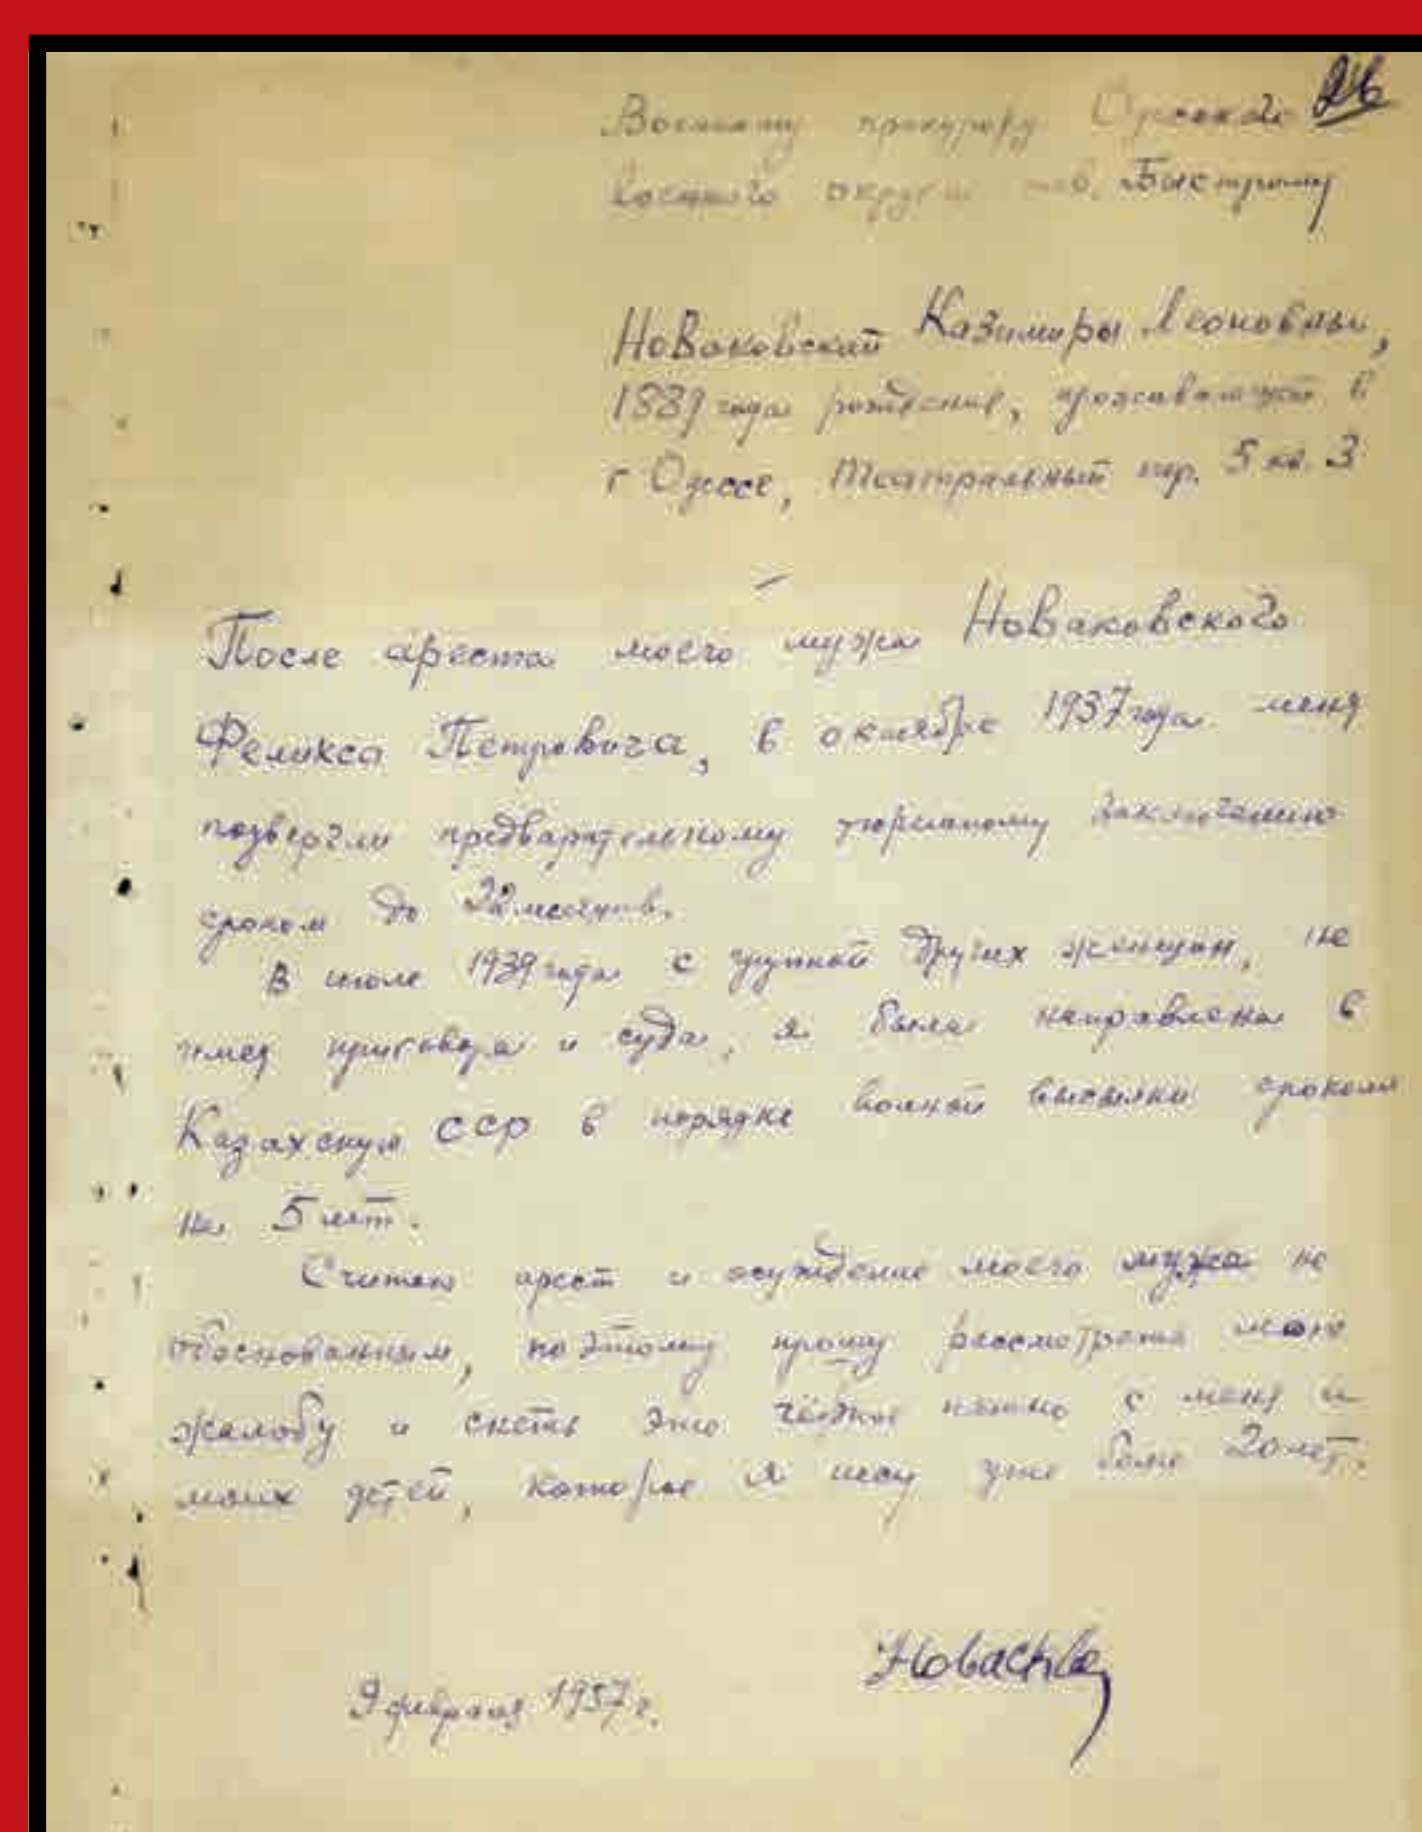 26
Военному прокурору Одесского
Военного округа тов. Быстрому
Новаковской Казимиры Леоновны,
1889 года рождение, проживающей в
г Одессе, Театральный пер. 5 кв. 3
После ареста моего мужа Новаковского
Феликса Петровича, в октябре 1937 года меня
подвергли предварительному тюремному заключению
сроком до 22 месяцев.
В июле 1939 года с группой других женщин, не
имея приговора и суда, я была направлена в
Казахскую ССР в порядке вольной высылки сроком
на 5 лет.
Считаю арест и осуждение моего мужа не
обоснованным, по этому прошу рассмотреть мою
жалобу и снять это чёрное пятно с меня и
моих детей, которое я несу уже более 20 лет.
9 февраля 1957 г.